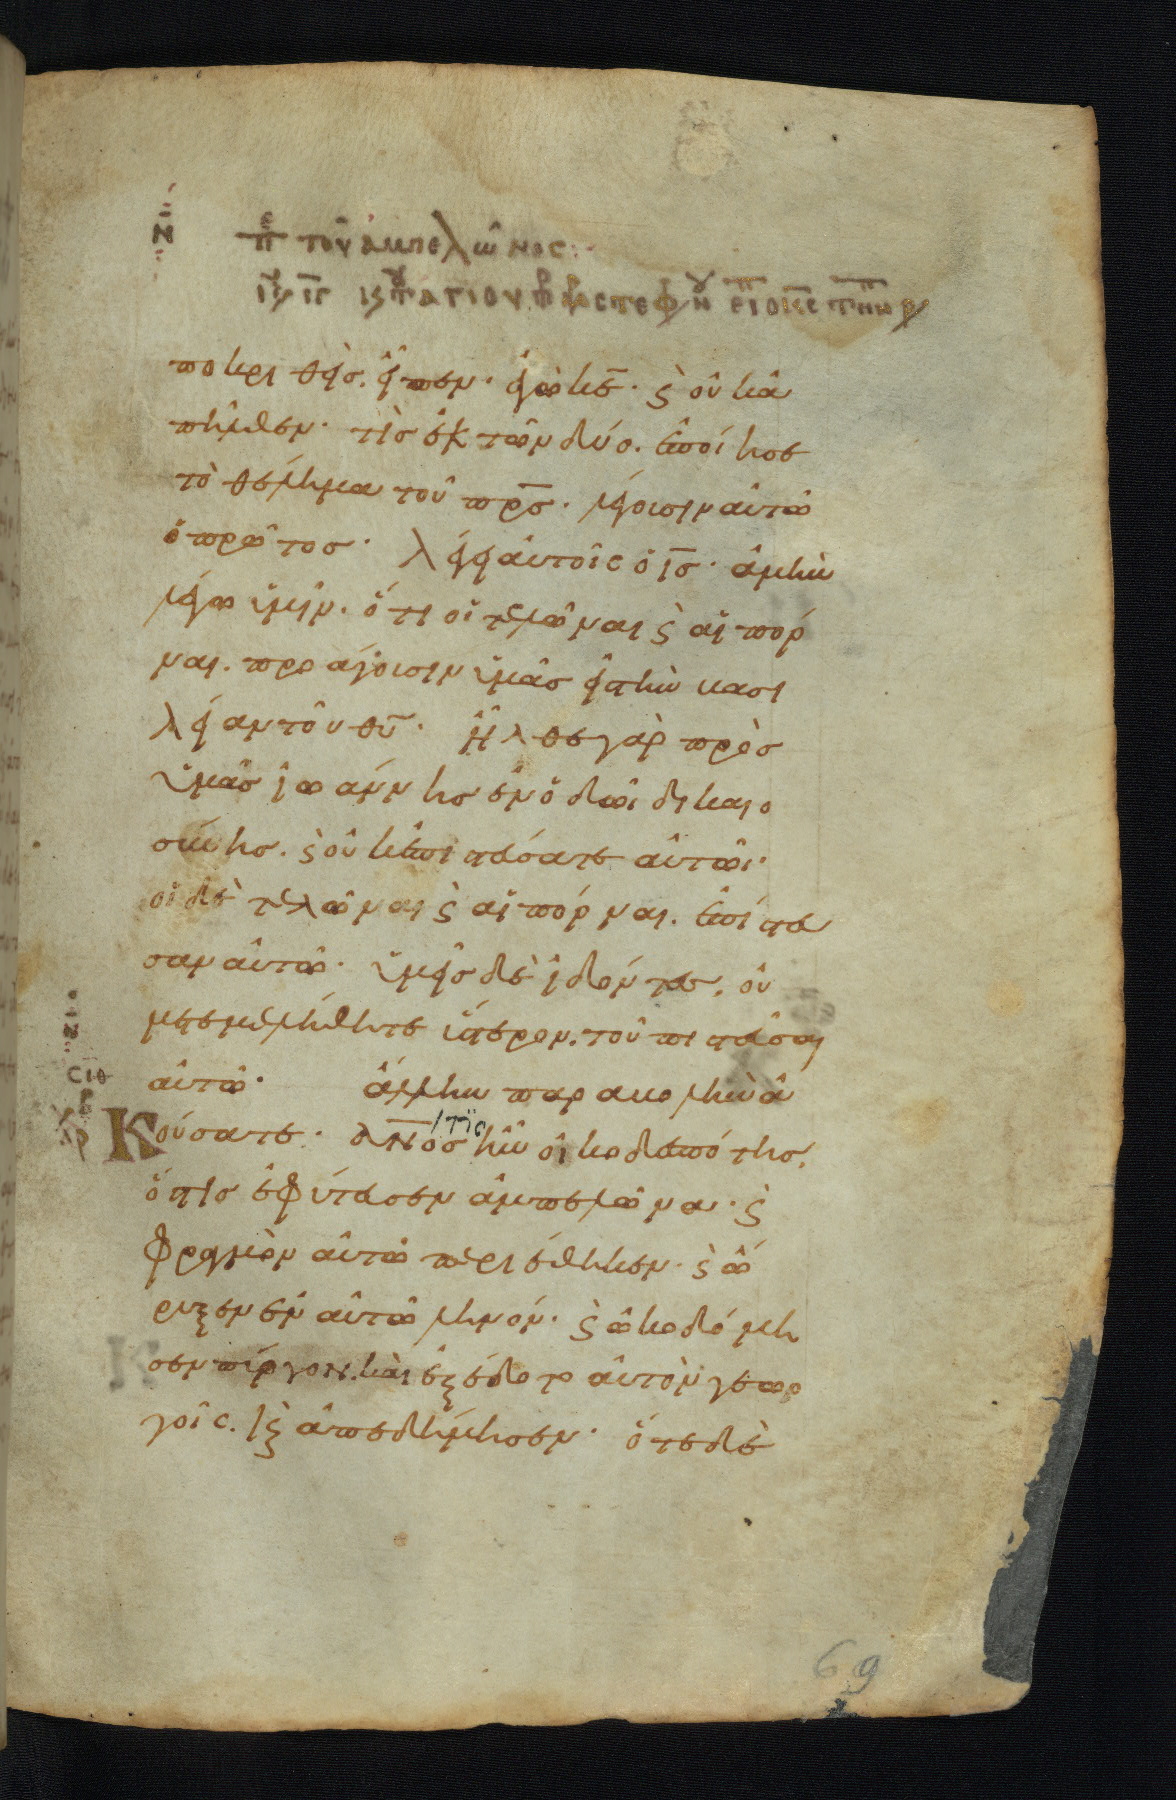 ΝΖ
πε τοῦ ἀμπελῶνος:
ποκριθεὶς. εἶπεν· ἐγὼ κε̄· ϛ οὐκ ἀ
πῆλθεν· τίς ἐκ τῶν δύο. ἐποίησε
τὸ θέλημα τοῦ πρ̅σ· λέγουσιν αὐτῶ
ὁ πρῶτος· λέγει αὐτοῖς ὁ ι̅σ· ἀμὴν
λέγω ὑμῖν. ὅτι οἱ τελῶναι ϛ αἱ πόρ
ναι. προάγουσιν ὑμᾶς εἰς τὴν βασι
λείαν τοῦ θυ̅· ἦλθε γὰρ πρὸς
ὑμᾶς ἰωάννης ἐν ὁδῶι δικαιο
σύνης. ϛ οὐκ ἐπιστεύσατε αὐτῶι·
οἱ δὲ τελῶναι ϛ αἱ πόρναι. ἐπίστευ
σαν αὐτῶ· ὑμεῖς δὲ ἰδόντες. οὐ
μετεμελήθητε ὕστερον. τοῦ πιστεῦσαι
αὐτῶ· ἄλλην παραβολὴν ἀ
Κούσατε· ἀ̅ν̅ος τὶς ἦν οἰκοδεσπότης.
ὅστις ἐφύτευσεν ἀμπελῶνα· ϛ
φραγμὸν αὐτῶ περιέθηκεν· ϛ ὤ
ρυξεν ἐν αὐτῶ ληνόν· ϛ ὠκοδόμη
σεν πύργον. καὶ ἐξέδοτο αὐτὸν γεωρ
γοῖς. ϛ ἀπεδήμησεν· ὅτε δὲ
69